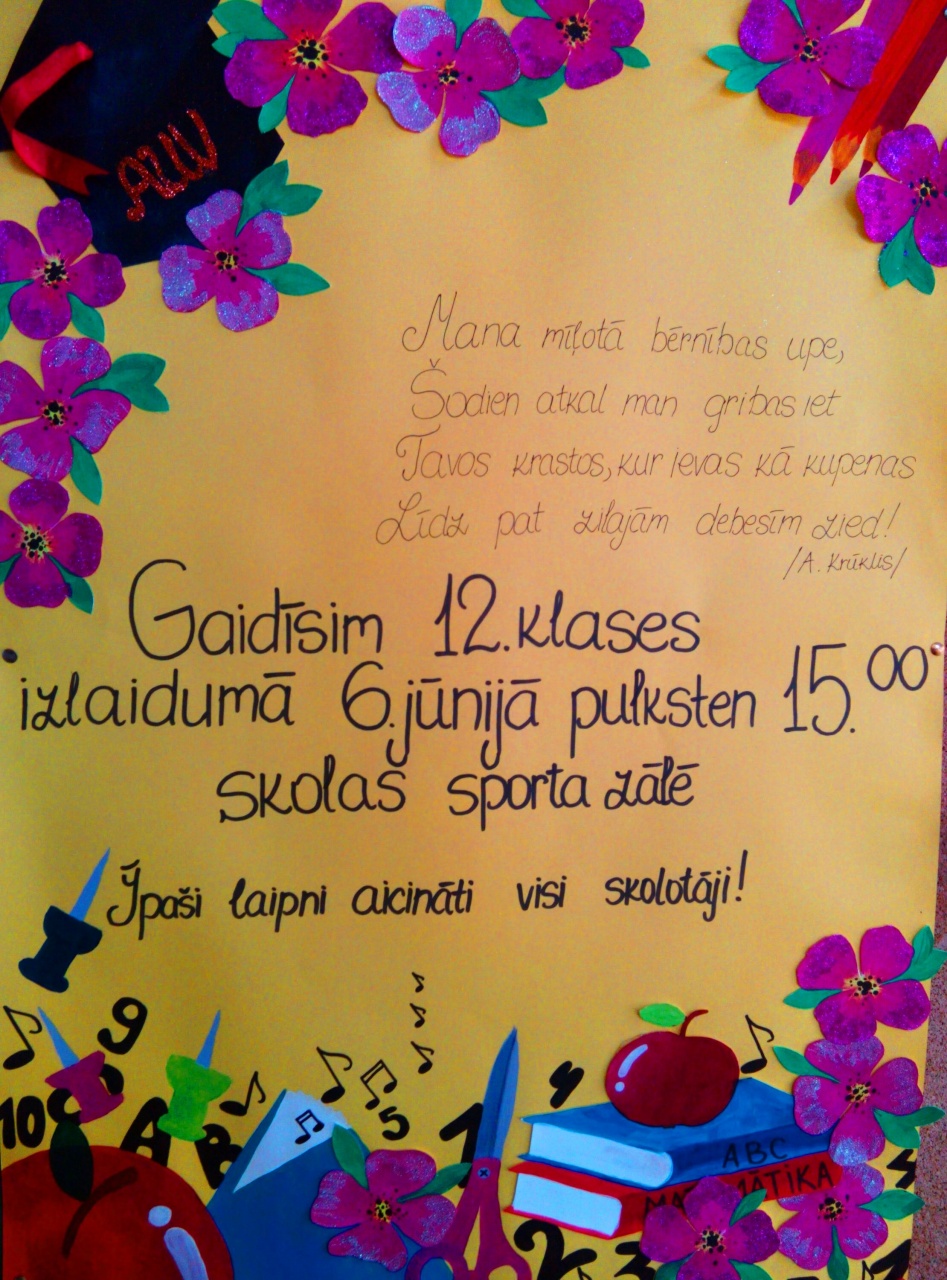 AŽUV
Mana mīļotā bērnības upe,
Šodien atkal man gribas iet
Tavos krastos, kur ievas kā kupenas
Līdz pat zilajām debesīm zied!
/A. Krūklis/
Gaidīsim 12. klases
izlaidumā 6. jūnijā pulksten 15.00
skolas sporta zālē
Īpaši laipni aicināti visi skolotāji!
9
10
A B
5
1
4
ABC
MATEMĀTIKA
2 3